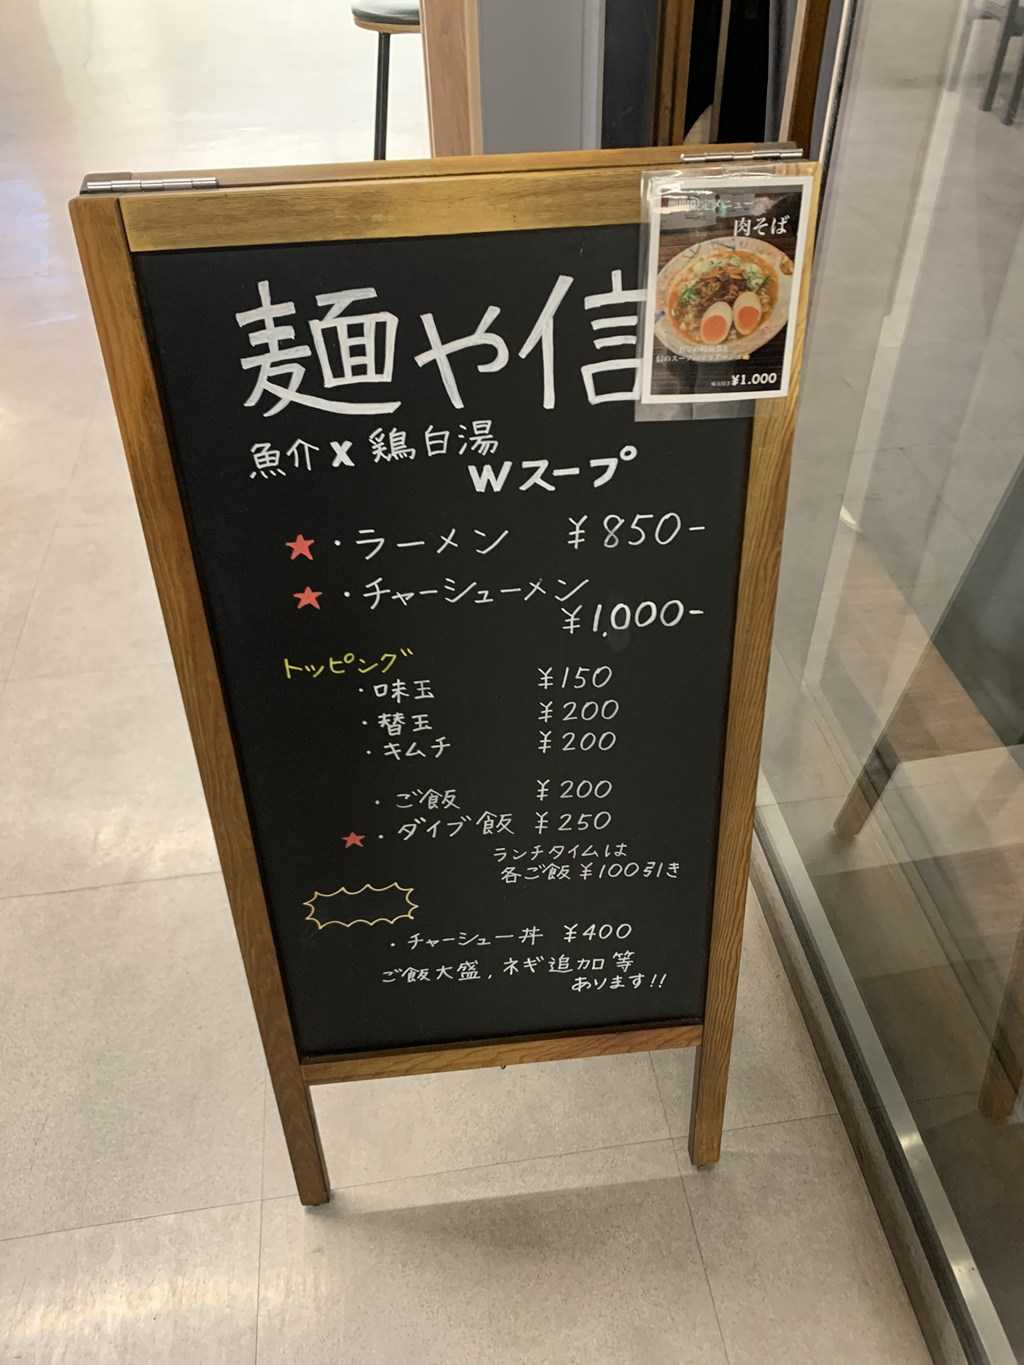 麺や信
魚介×鶏白湯
Wスープ
・ラーメン ¥850-
・チャーシューメン
¥1,000-
トッピング
・味玉 ¥150
・替玉 ¥200
・キムチ ¥200
・ご飯 ¥200
・ダイブ飯 ¥250
ランチタイムは
各ご飯¥100引き
・チャーシュー丼 ¥400
ご飯大盛,ネギ追加等
あります!!
期間限定メニュー
肉そば
¥1.000